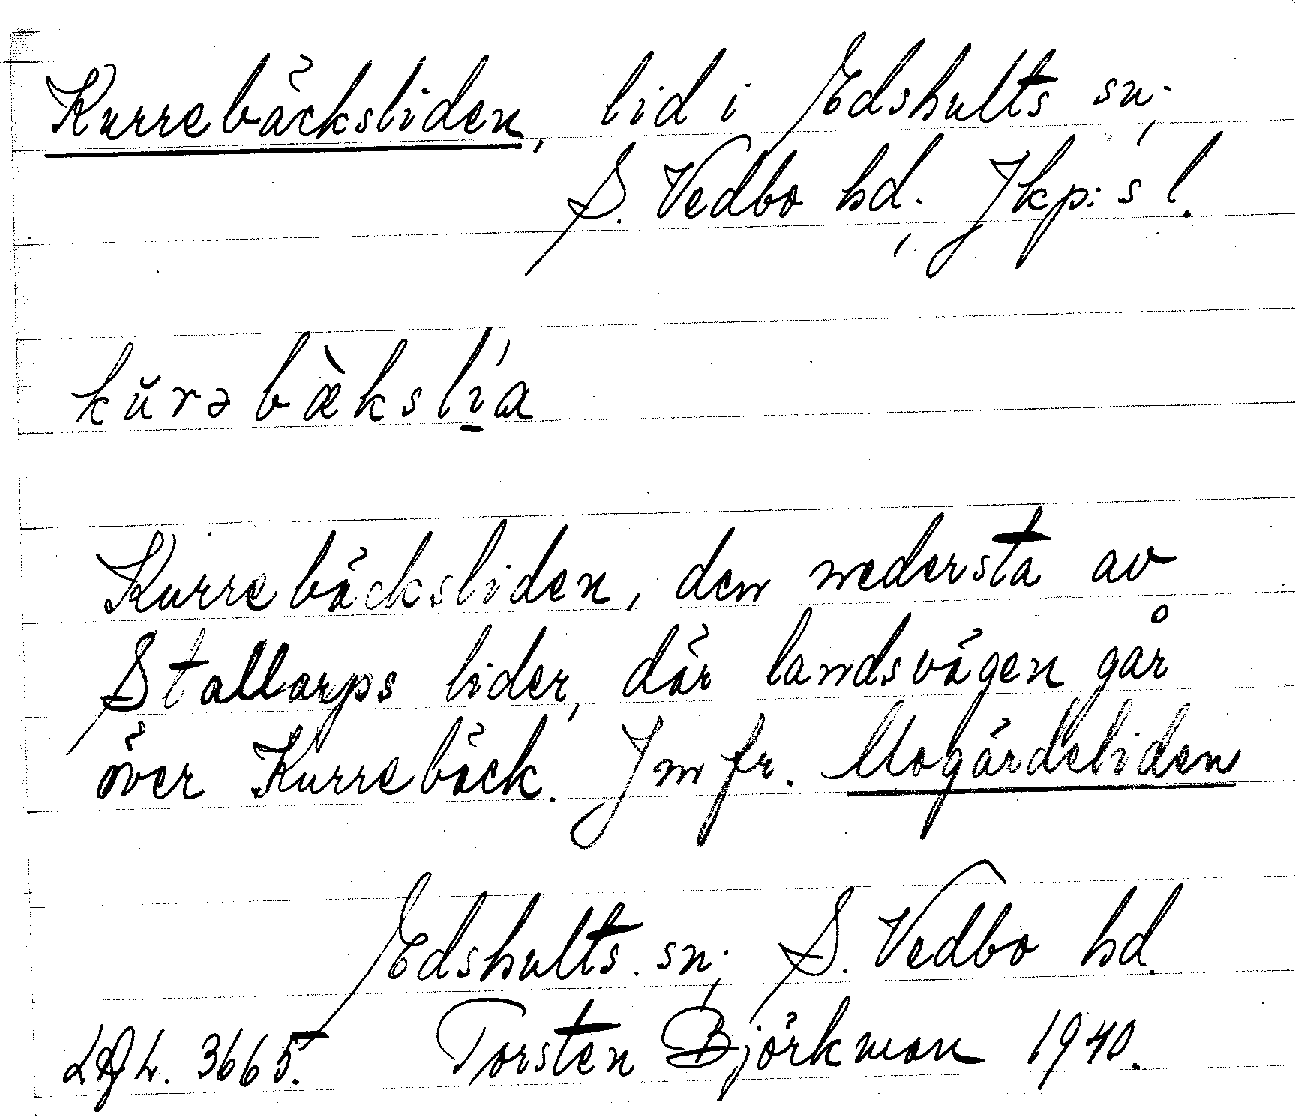 Kurrebäcksliden, lid i Edshults sn.,
S. Vedbo hd., Jkp:s l.
kŭrəbæ̀kslí̱a
Kurrebäcksliden, den nedersta av
Stallarps lider, där landsvägen går
över Kurrebäck. Jmfr. Mogärdeliden
Edshults sn., S. Vedbo hd.
3665. Torsten Björkman 1940.